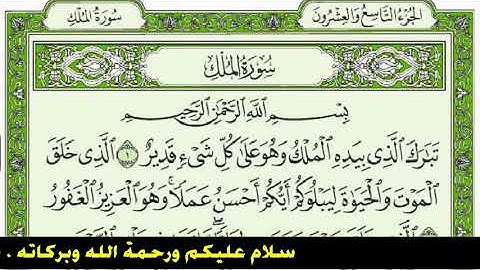 الجُزْءُ التَّاسِعُ وَالعِشْرُونَ
سُورَةُ المُلْكِ
سُورَةُ المُلْكِ
بِسْمِ ٱللَّهِ ٱلرَّحْمَٰنِ ٱلرَّحِيمِ
تَبَٰرَكَ ٱلَّذِي بِيَدِهِ ٱلْمُلْكُ وَهُوَ عَلَىٰ كُلِّ شَىْءٍ قَدِيرٌ ١ ٱلَّذِي خَلَقَ
ٱلْمَوْتَ وَٱلْحَيَوٰةَ لِيَبْلُوَكُمْ أَيُّكُمْ أَحْسَنُ عَمَلًا ۚ وَهُوَ ٱلْعَزِيزُ ٱلْغَفُورُ
سلام عليكم ورحمة الله وبركاته .